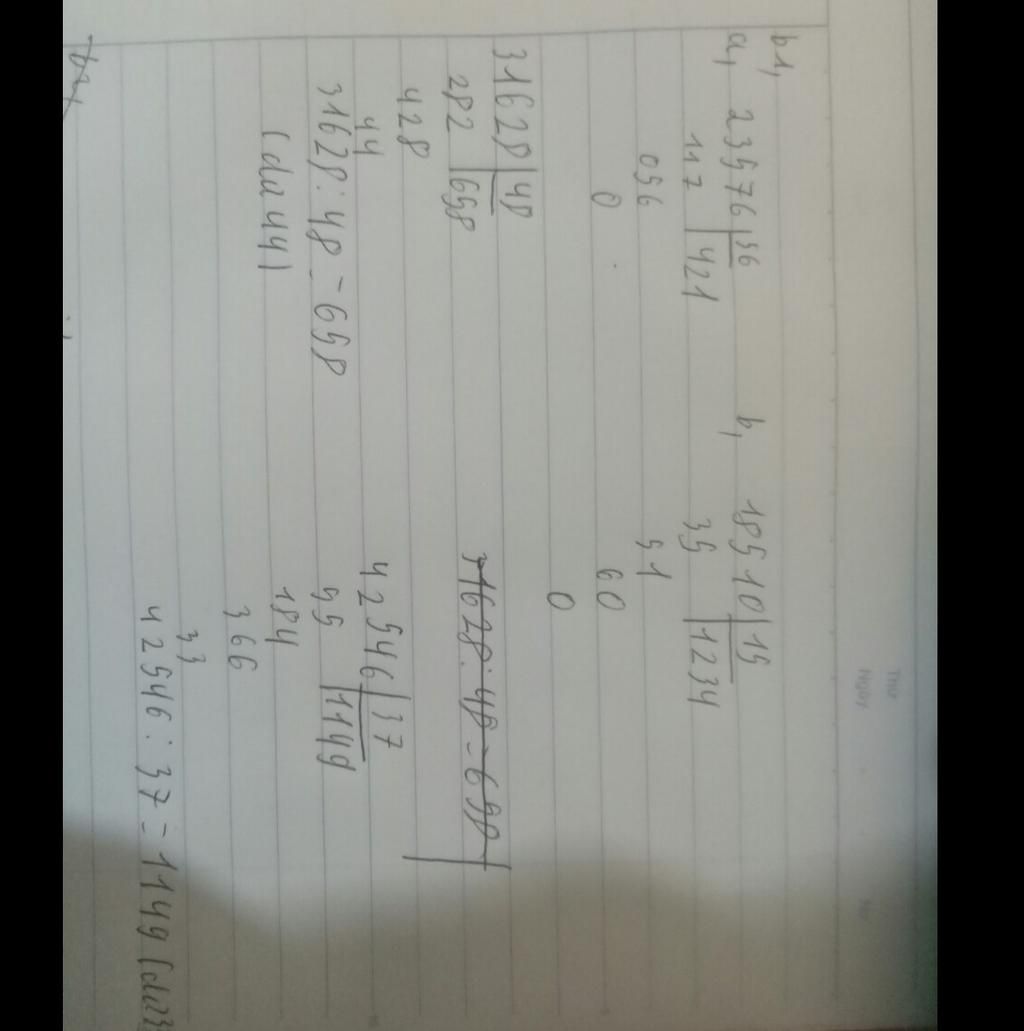 Thứ
Ngày
b1,
a, 23576 56 b, 18510 15
117 421 35 1234
056 51
0 60
0
31628 48
282 658 31628 : 48 = 658
428
44 42546 37
31628 : 48 = 658 55 1149
(dư 44) 184
366
33
42546 : 37 = 1149 (dư 3